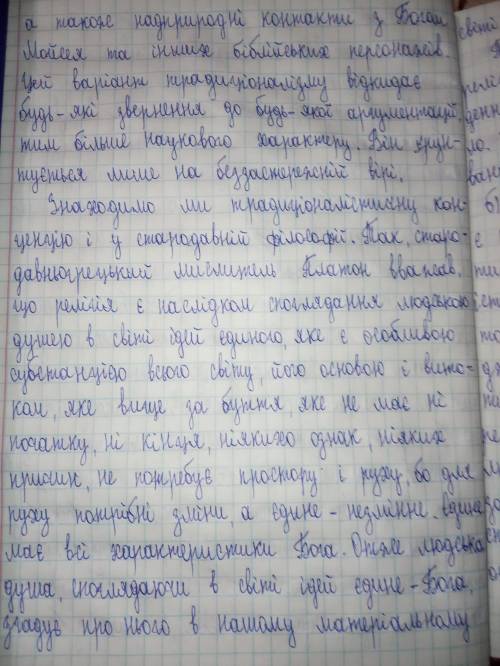 а також надприродні контакти з Богом
Мойсея та інших біблійських персонажів.
Цей варіант традиціоналізму відкидає
будь-які звернення до будь-якої аргументації,
тим більше наукового характеру. Він ґрун-
тується лише на беззастережній вірі.
Знаходимо ми традиціоналістичну кон-
цепцію і у стародавній філософії. Так, старо-
давньогрецький мислитель Платон вважав,
що релігія є наслідком споглядання людською
душею в світі ідей єдиного, яке є особливою
субстанцією всього світу, його основою і вито-
ком, яке вище за буття, яке не має ні
початку, ні кінця, ніяких ознак, ніяких
причин, не потребує простору і руху, бо для
руху потрібні зміни, а єдине - незмінне. Єдине
має всі характеристики Бога. Отже людська
душа, споглядаючи в світі ідей єдине - Бога,
згадує про нього в нашому матеріальному